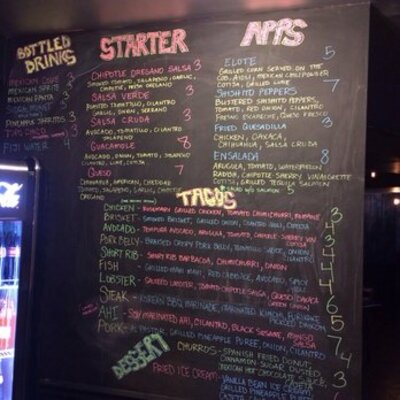 BOTTLED
DRINKS
MEXICAN COKE 3
MEXICAN SPRITE 3
MEXICAN FANTA
PINEAPPLE JARRITOS 3
TOPO CHICO
FIJI WATER 4
STARTER
CHIPOTLE OREGANO SALSA 3
SMOKED TOMATO, JALAPENO, GARLIC,
CHIPOTLE, FRESH OREGANO
SALSA VERDE 3
ROASTED TOMATILLO, CILANTRO
GARLIC, ONION, SERRANO
SALSA CRUDA 3
AVOCADO, TOMATILLO, CILANTRO
JALAPENO
GUACAMOLE 8
AVOCADO, ONION, TOMATO, JALAPENO
CILANTRO, LIME, COTIJA
QUESO 7
CHIHUAHUA, AMERICAN, CHEDDAR
TOMATO, JALAPENO, GARLIC, CHIPOTLE
OREGANO
APPS
ELOTE 5
GRILLED CORN SERVED ON THE
COB, AIOLI, MEXICAN CHILI POWDER
COTIJA, GRILLED LIME
SHISHITO PEPPERS 7
BLISTERED SHISHITO PEPPERS,
TOMATO, RED ONION, CILANTRO
FRESNO ESCABECHE, QUESO FRESCO
FRIED QUESADILLA 3
CHICKEN, OAXACA
CHIHUAHUA, SALSA CRUDA
ENSALADA 8
ARUGULA, TOMATO, WATERMELON
RADISH, CHIPOTLE SHERRY VINAIGRETTE
COTIJA, GRILLED TEQUILA SALMON
5
TACOS
CHICKEN - ROSEMARY GRILLED CHICKEN, TOMATO CHIMICHURRI, 3
BRISKET - SMOKED BRISKET, GRILLED ONION, 4
AVOCADO - TEMPURA AVOCADO, ARUGULA, TOMATO, CHIPOTLE-SHERRY VIN 3
COTIJA
PORK BELLY - BRAISED CRISPY PORK BELLY, TOMATILLO-VERDE, ONION 4
CILANTRO
SHORT RIB - SHORT RIB BARBACOA, CHIMICHURRI, ONION 4
FISH - GRILLED MAHI MAHI, RED CABBAGE, AVOCADO, SPICY 4
LOBSTER - SAUTEED LOBSTER, TOMATO-CHIPOTLE SALSA, QUESO OAXACA 6
STEAK - KOREAN BBQ MARINADE, MARINATED KIMCHI, 5
AHI - SOY MARINATED AHI, CILANTRO, BLACK SESAME, MANGO 7
SALSA
PORK - AL PASTOR, GRILLED PINEAPPLE PUREE, ONION, CILANTRO 4
DESSERT
CHURROS - SPANISH FRIED DONUT, 3
CINNAMON SUGAR DUSTED
MEXICAN HOT CHOCOLATE SAUCE
FRIED ICE CREAM -
VANILLA BEAN ICE CREAM
GRILLED PINEAPPLE